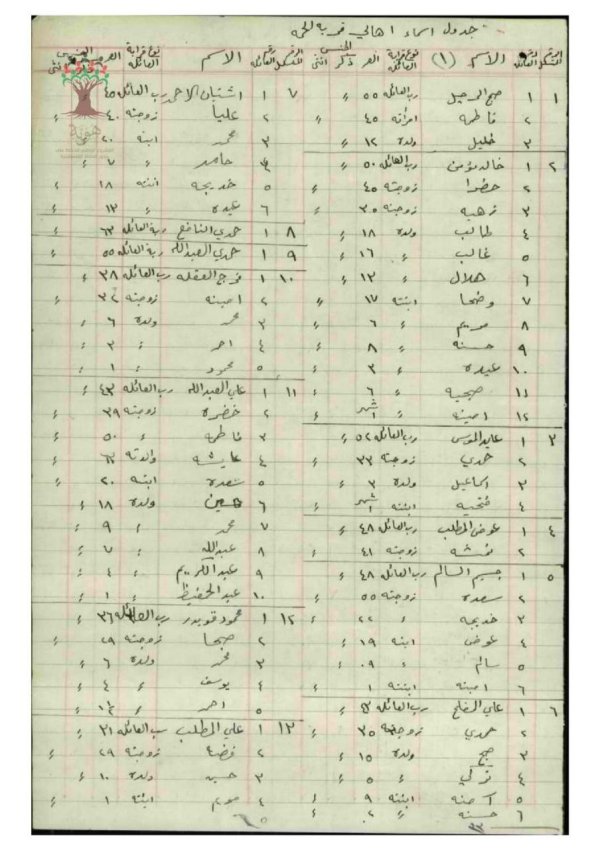 جدول اسماء اهالي قرية الحمه
الرقم المتسلسل رقم العائله الاسم (١) نوع قرابة العائله العمر الجنس ذكر انثى
١ ١ رب العائله ٥٥ 〃
٢ فاطمه امرأته ٤٥ 〃
٣ خليل ولده ١٢ 〃
٢ ١ خالد رب العائله ٥٠ 〃
٢ خضرا زوجته ٤٥ 〃
٣ زهيه زوجته ٣٥ 〃
٤ طالب ولده ١٨ 〃
٥ غالب 〃 ١٦ 〃
٦ هلال 〃 ١٣ 〃
٧ وضحا ابنته ١٧ 〃
٨ مريم 〃 ٦ 〃
٩ حسنه 〃 ٨ 〃
١٠ عيده 〃 ٣ 〃
١١ صبحيه 〃 ٦ 〃
١٢ امينه 〃 ١ شهر 〃
٣ ١ عايد رب العائله ٥٢ 〃
٢ حمدي زوجته ٣٣ 〃
٣ اسماعيل ولده ٣ 〃
٤ فتحيه ابنته ١ شهر 〃
٤ ١ عوض المطلب رب العائله ٤٨ 〃
٢ زوجته ٤١ 〃
٥ ١ جسيم السالم رب العائله ٤٨ 〃
٢ سعده زوجته ٥٥ 〃
٣ خديجه 〃 ٢٢ 〃
٤ عوض ابنه ١٩ 〃
٥ سالم 〃 ٠٩ 〃
٦ امينه ابنته ١ 〃
٦ ١ علي المفلح رب العائله 〃
٢ حمدي زوجته ٣٥ 〃
٣ ولده ١٥ 〃
٤ تركي 〃 ٥ 〃
٥ آمنه ابنته ٩ 〃
٦ حسنه 〃 ٢ 〃
٣٣
الرقم المتسلسل رقم العائله الاسم نوع قرابة العائله العمر الجنس انثى
٧ ١ رب العائله ٤٥
٢ عليا زوجته ٤٠ 〃
٣ محمد ابنه ٢٠ 〃
٤ حامد 〃 ٧ 〃
٥ خديجه ابنته ١٨ 〃
٦ عيده 〃 ١٣ 〃
٨ ١ حمدي النافع ربة العائله ٦٣ 〃
٩ ١ حمدي العبدالله ربة العائله ٥٥ 〃
١٠ ١ فرج العقله رب العائله ٣٨ 〃
٢ امينه زوجته ٣٢ 〃
٣ محمد ولده ٦ 〃
٤ احمد 〃 ٣ 〃
٥ محمود 〃 ١ 〃
١١ ١ علي العبدالله رب العائله ٤٣ 〃
٢ خضره زوجته ٣٩ 〃
٣ فاطمه 〃 ٥٠ 〃
٤ عايشه والدته 〃
٥ سعده ابنته ٢٠ 〃
٦ حسين ولده ١٨ 〃
٧ محمد 〃 ٩ 〃
٨ عبدالله 〃 ٧ 〃
٩ عبدالكريم 〃 ٤ 〃
١٠ عبدالحفيظ 〃 ١ 〃
١٢ ١ محمود قويدر رب العائله ٣٦ 〃
٢ صبحا زوجته ٢٩ 〃
٣ محمد ولده ٦ 〃
٤ يوسف 〃 ٤ 〃
٥ احمد 〃 〃
١٣ ١ علي المطلب رب العائله ٣١ 〃
٢ فضة زوجته ٢٩ 〃
٣ حسين ولده ١٠ 〃
٤ مريم ابنته ١ 〃
هوية